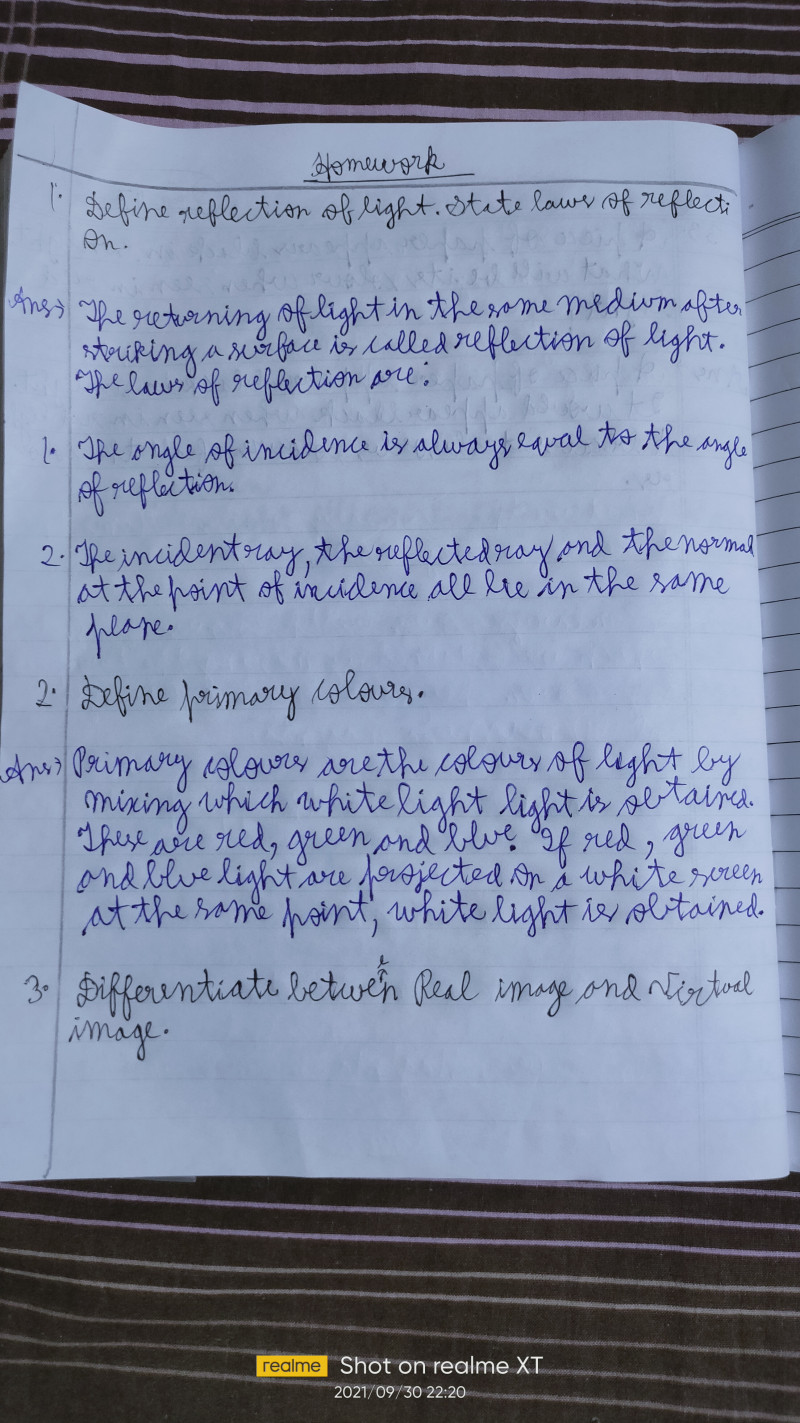 Homework
1. Define reflection of light. State laws of reflecti
on.
Ans→ The returning of light in the same medium after
striking a surface is called reflection of light.
The laws of reflection are:
1. The angle of incidence is always equal to the angle
of reflection.
2. The incident ray, the reflected ray and the normal
at the point of incidence all lie in the same
plane.
2. Define primary colours.
Ans→ Primary colours are the colours of light by
mixing which white light light is obtained.
These are red, green and blue. If red, green
and blue light are projected on a white screen
at the same point, white light is obtained.
3. Differentiate between Real image and Virtual
image.
realme Shot on realme XT
2021/09/30 22:20